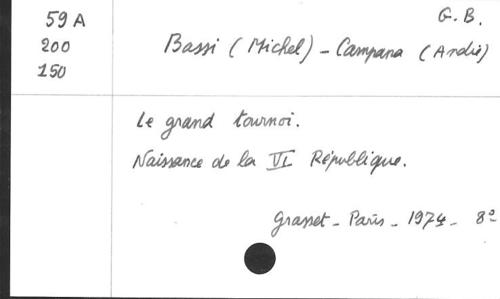 59 A
200
150
G.B.
Bassi (Michel) - Campana (André)
Le grand tournoi.
Naissance de la VI République.
Grasset - Paris - 1974 - 8º